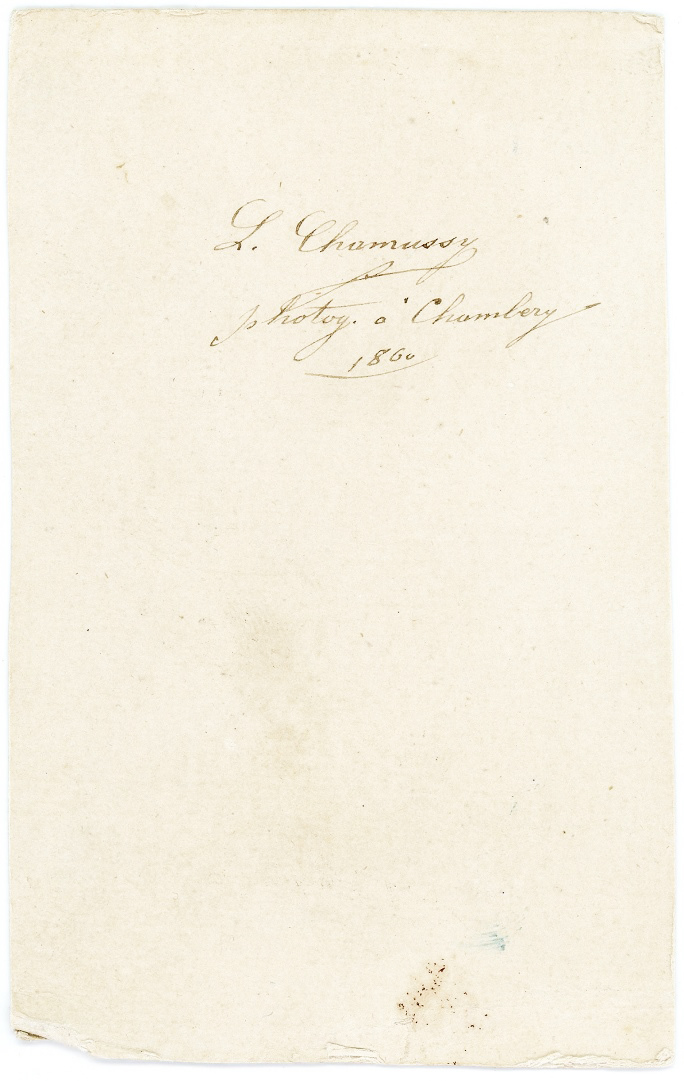 L. Chamussy
photog. à Chambery
1860